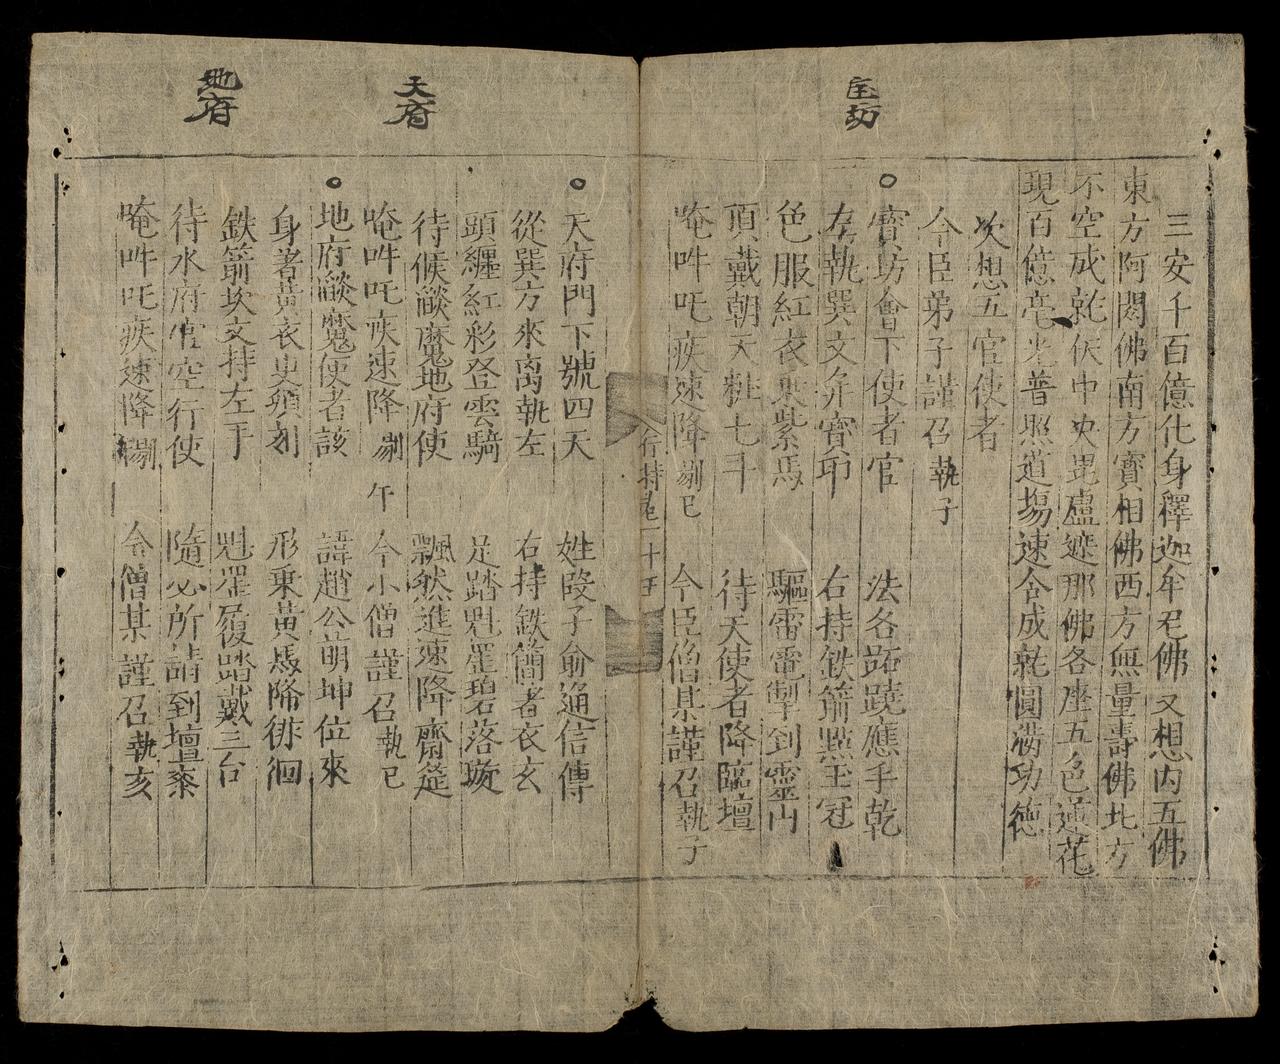 宝坊
三安千百億化身釋迦牟尼佛又想內五佛
東方阿閦佛南方寶相佛西方無量壽佛北方
不空成就佚中央毘盧遮那佛各座五色蓮花
現百億毫光普照道場速令成就圓滿功德
次想五官使者
今臣弟子謹召執子
○寶坊會下使者官 法各跖蹺應手乾
左執巽文弁寶印 右持鉄箭㸃玉冠
色服紅衣乘紫馬 驅雷電掣到靈山
頂戴朝天粧七斗 待天使者降臨壇
唵吽吒疾速降 剔巳 今臣僧某謹召執子
行持 二十五
天府
地府
○天府門下號四天 姓段子俞通信傳
從巽方來离執左 右持鉄簡者衣玄
頭纏紅彩登雲騎 足踏魁罡碧落璇
待候燄魔地府使 飄然進速降齋筵
唵吽吒疾速降剔午 今小僧謹召執巳
○地府燄魔使者該 諱趙公萌坤位來
身着黃衣更殞刻 形乗黃馬降徘徊
鉄箭坎文持左手 魁罡履踏戴三台
待水府官空行使 隨必所請到壇臺
唵吽吒疾速降剔 今僧某謹召執亥